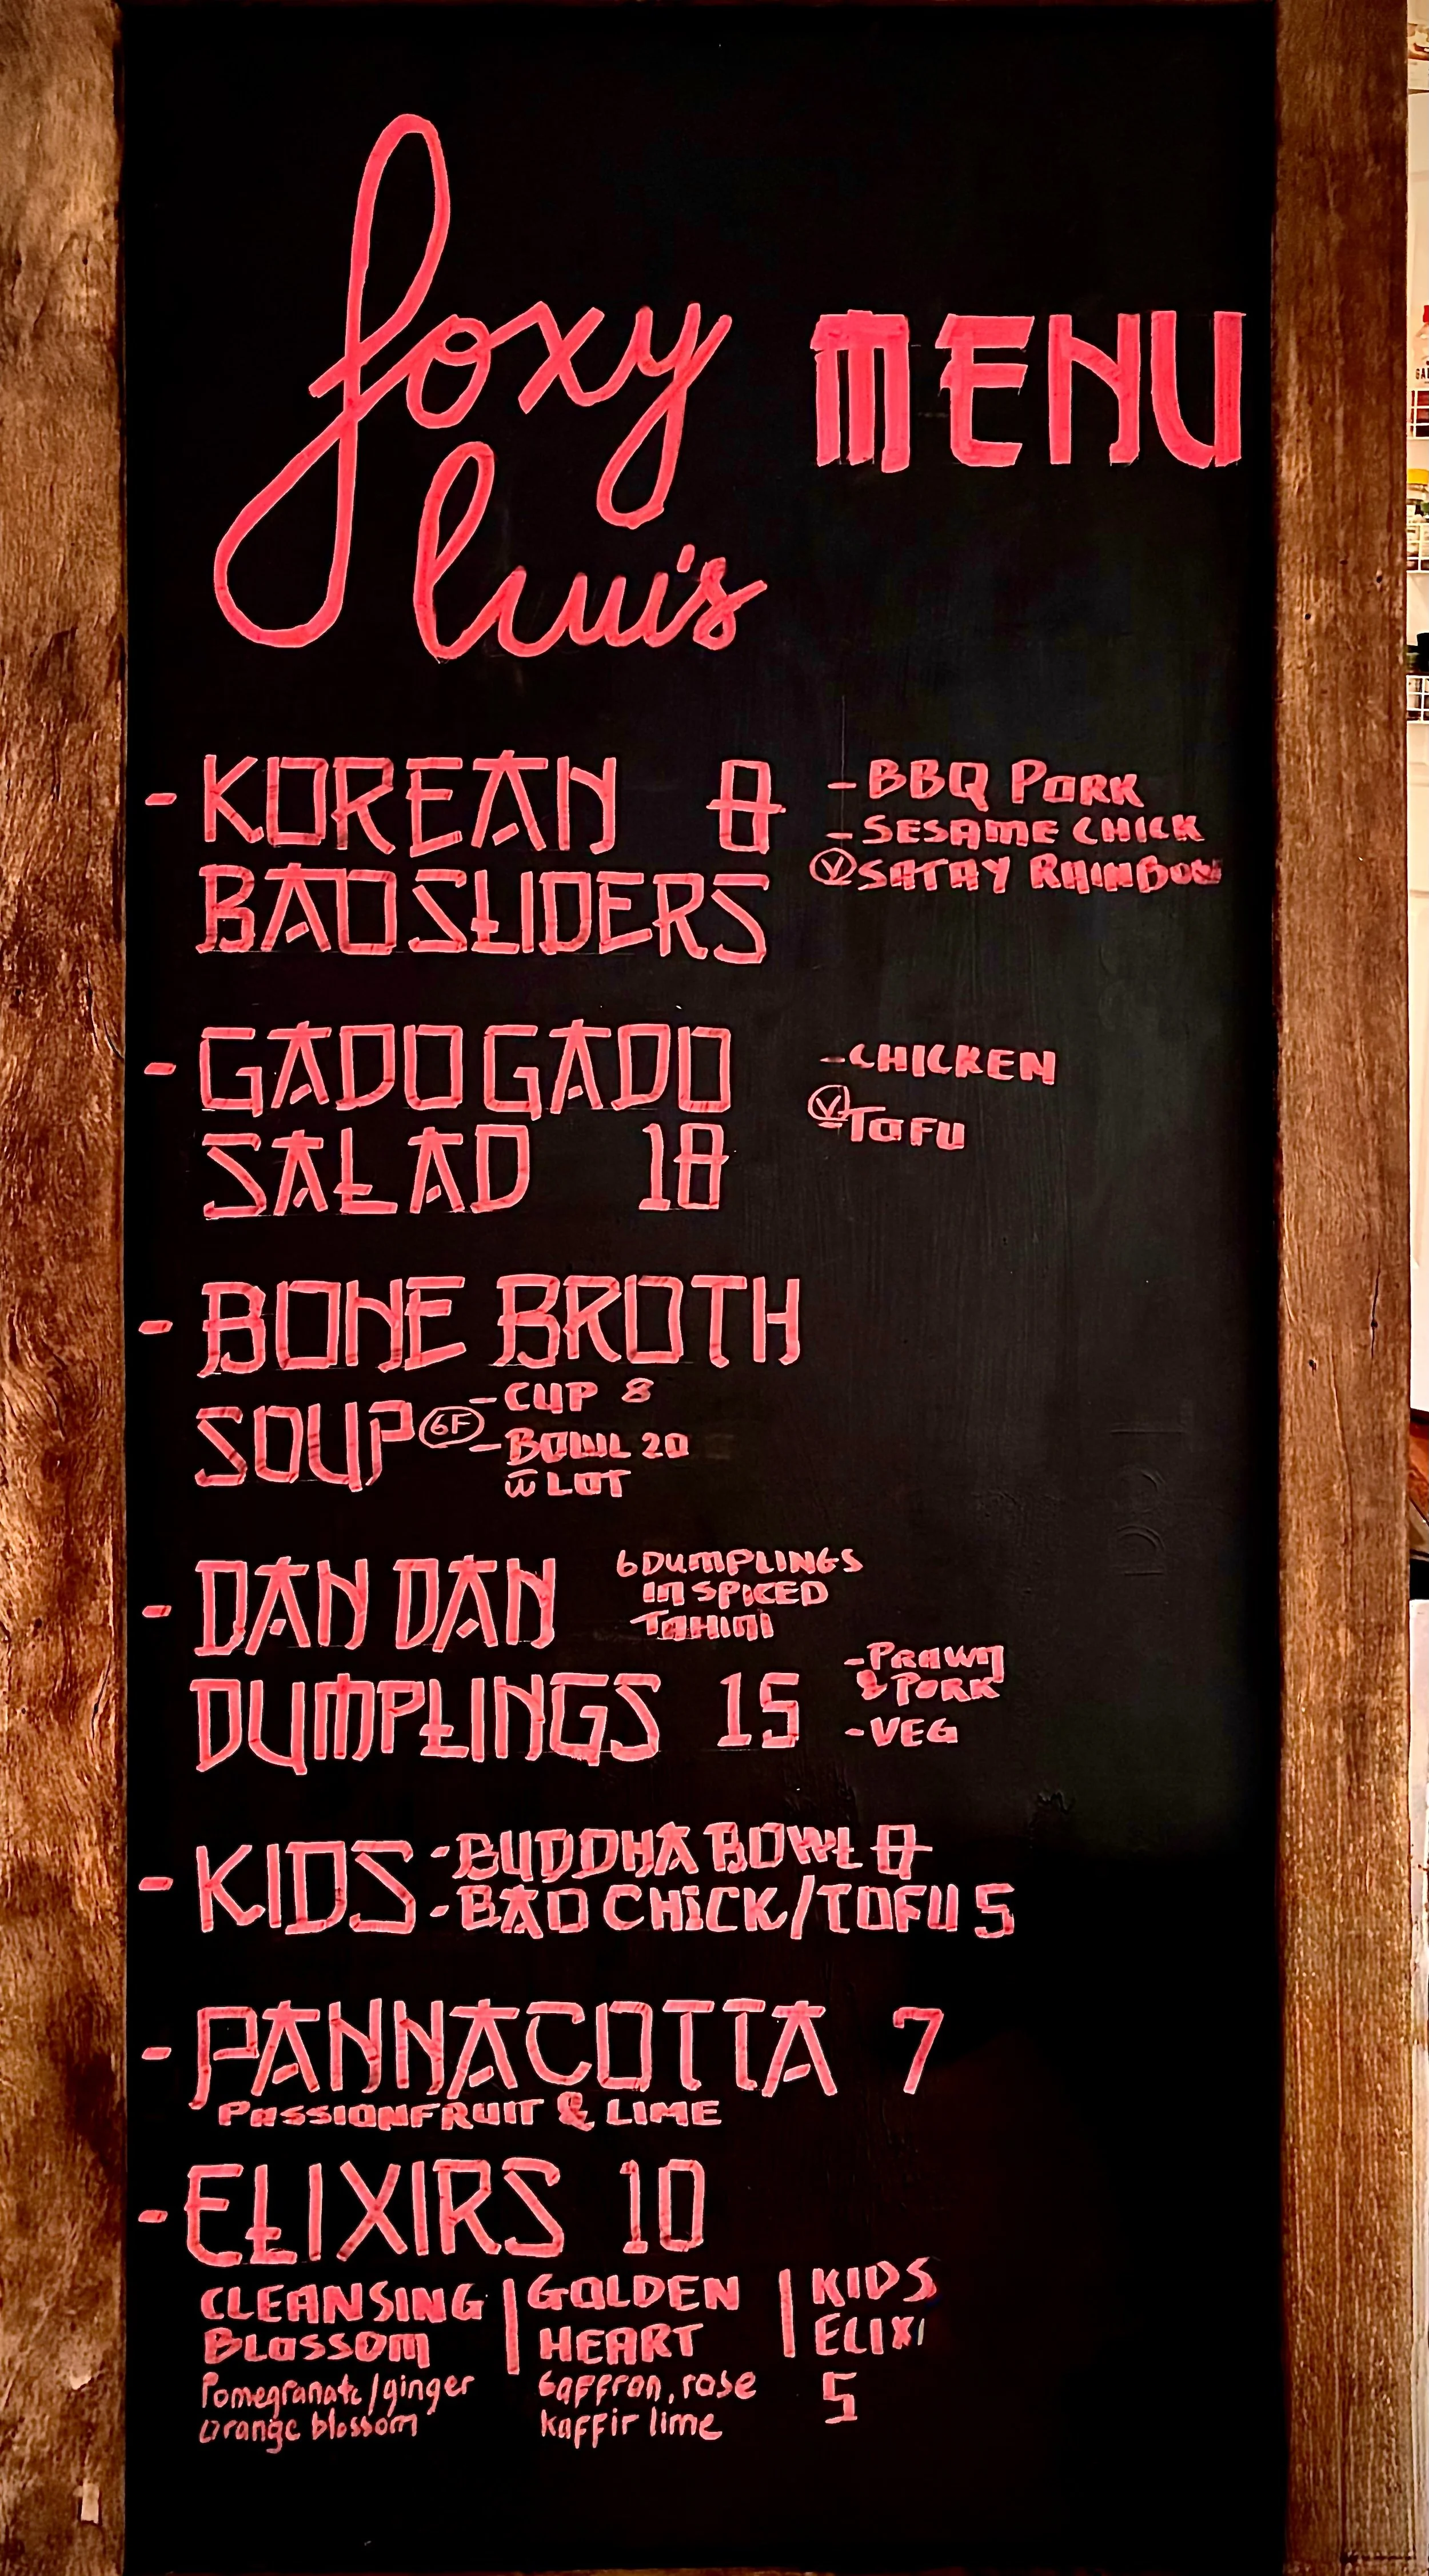 foxy MENU
luui's
- KOREAN 8
BAO SLIDERS
- BBQ PORK
- SESAME CHICK
Ⓥ SATAY RAINBOW
- GADO GADO
SALAD 18
- CHICKEN
Ⓥ - TOFU
- BONE BROTH
SOUP GF - CUP 8
- BOWL 20
w̄ LOT
- DAN DAN
DUMPLINGS 15
6 DUMPLINGS
IN SPICED
TAHINI
- PRAWN
& PORK
- VEG
- KIDS - BUDDHA BOWL 8
- BAO CHICK/TOFU 5
- PANNACOTTA 7
PASSIONFRUIT & LIME
- ELIXIRS 10
CLEANSING
BLOSSOM
Pomegranate/ginger
orange blossom
GOLDEN
HEART
Saffron, rose
kaffir lime
KIDS
ELIXI
5